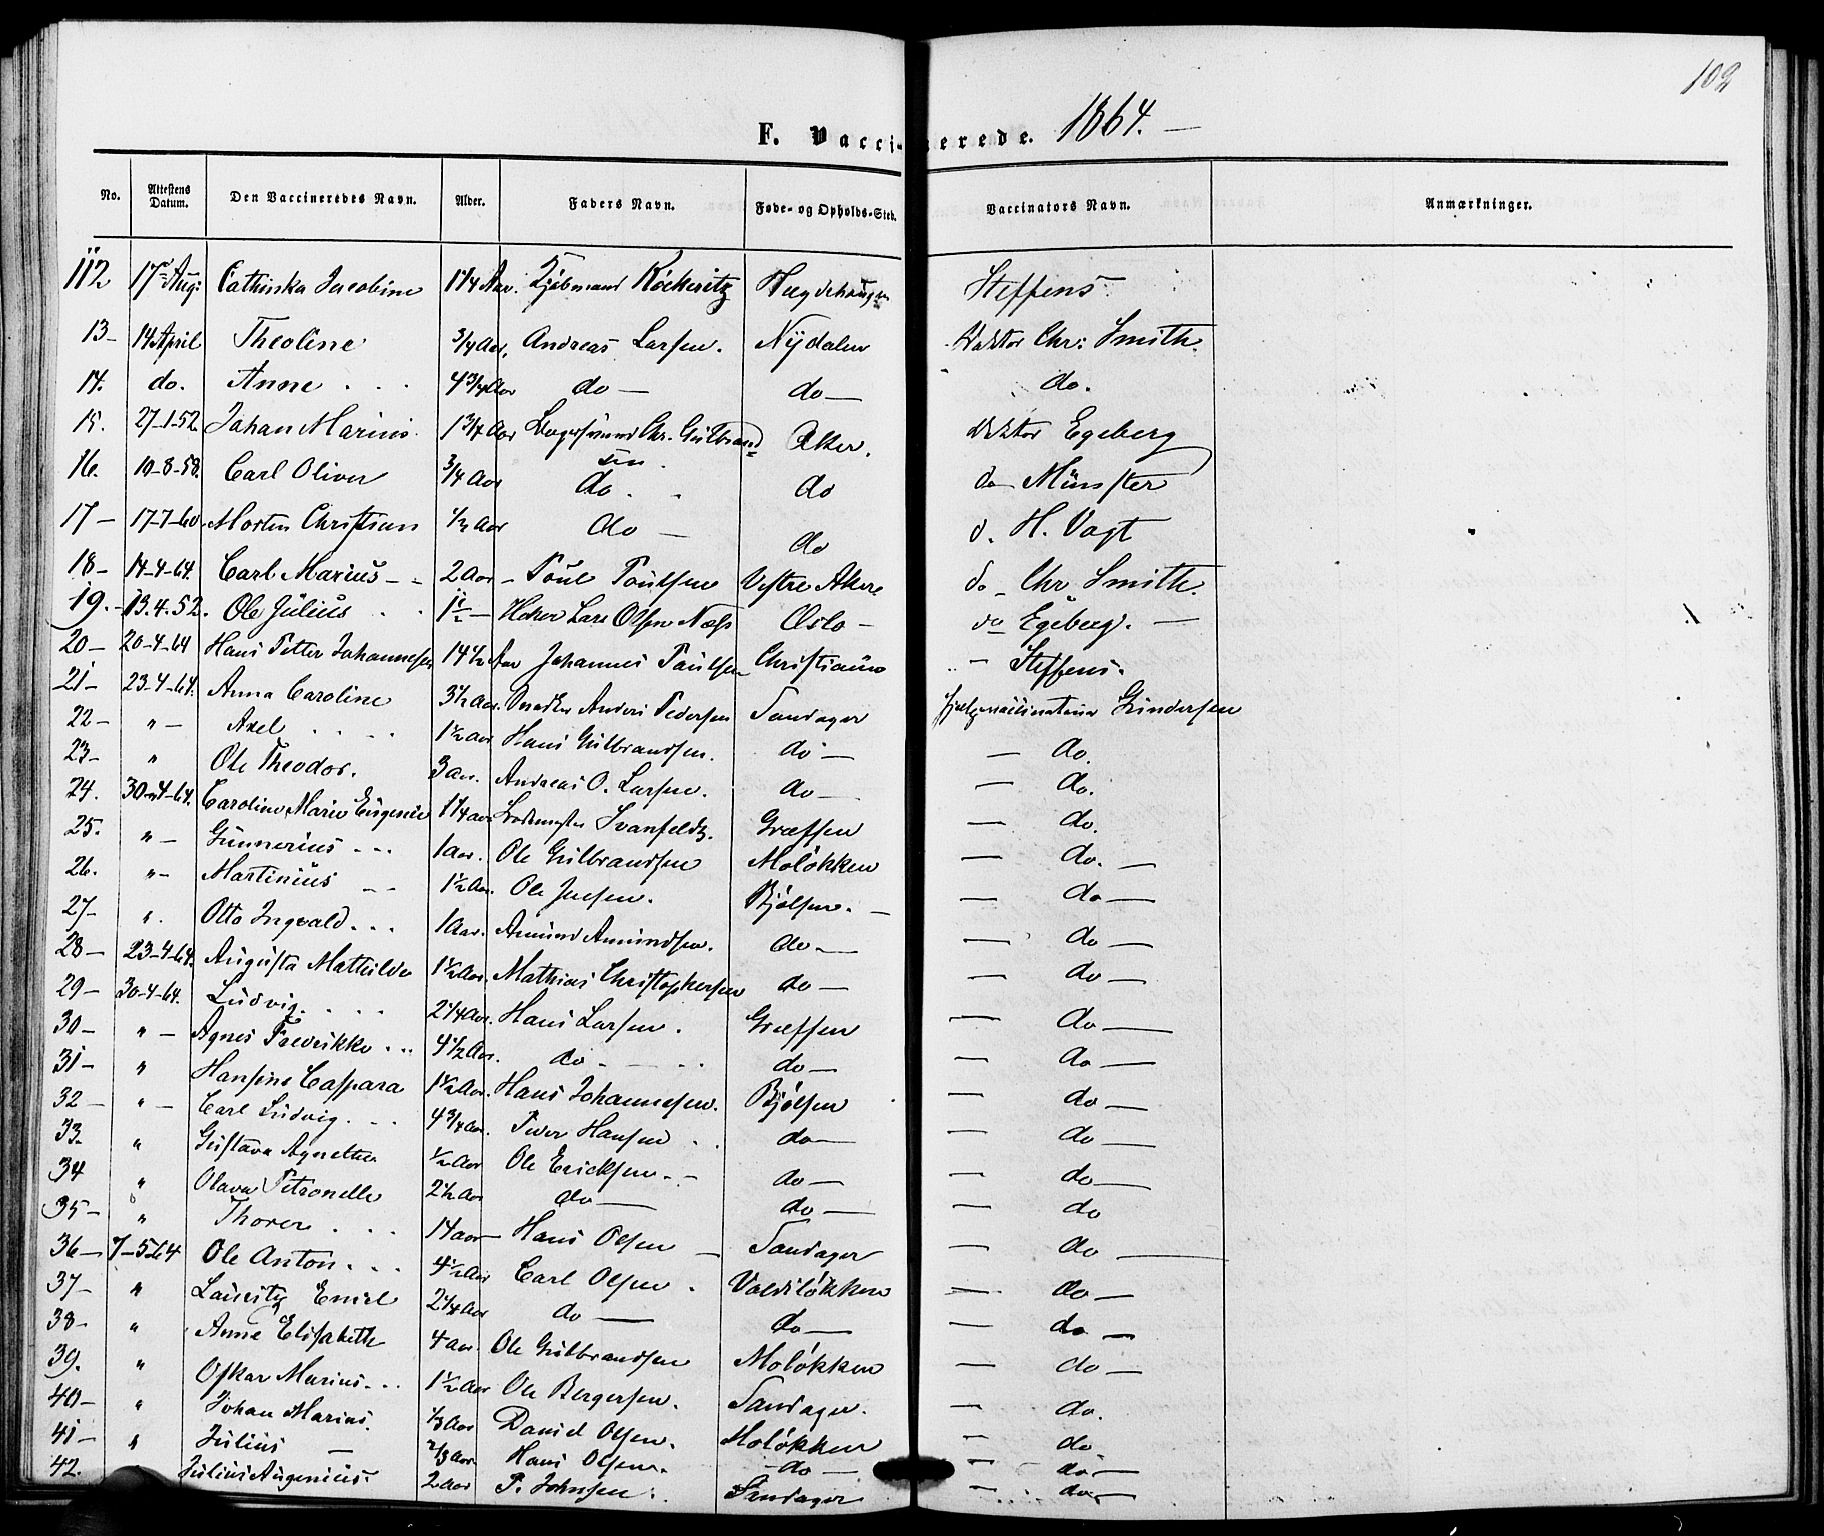 102
F. Vaccinerede. 1864. —
No. Attestens Datum. Den Vaccineredes Navn. Alder. Faders Navn. Føde- og Opholds-Sted. Vaccinators Navn. Anmærkninger.
112 17 Aug: Cathinka Jacobine 1 1/4 Aar. Kjøbmand Köckeritz Hægdehaugen Steffens
13 – 14 April Theoline 3/4 Aar. Andreas Larsen. Nydalen Doktor Chr: Smith.
14. do. Anne . . 4 3/4 Aar do — do — do.
15. 27-1-52. Johan Marius 1 3/4 Aar Chr. Gulbrand= Aker. doktor Egeberg
sen.
16. 10-8-58. Carl Oliver 3/4 Aar do. do do Münster
17 – 17-7-60. Morten Christian 1/2 Aar do — do d. H. Vogt
18 – 14-4-64. Carl Marius – – 2 Aar – Poul Poulsen Vestre Aker do – Chr Smith.
19. – 13.4.52. Ole Julius . . 1 1/2 — Høker Lars Olsen Næss Oslo – do Egeberg. —
20 – 20-4-64 Hans Petter Johannesen 14 1/2 Aar Johannes Paulsen Christiania – Steffens.
21 – 23-4-64. Anna Caroline 3 1/2 Aar. Snedker Anders Pedersen Sandager Hjelpevaccinateur Gundersen
22 – " – Axel . . . . 1 1/2 Aar Hans Gulbrandsen. do — — do.
23 – " Ole Theodor. 3 Aar. Andreas O. Larsen. do — — do.
24. 30-4-64. Caroline Marie Eugenie 1 1/4 aar Svanfeldt. Græfsen — do.
25. " – Gunnerius – – – 1 aar. Ole Gulbrandsen Moløkken — do. —
26. " – Martinius – – 1 1/2 Aar. Ole Jensen. Bjølsen. — — do —
27 – ". Otto Ingvald . . . 1 Aar. Amund Amundsen. do — — do —
28 – 23-4-64. Augusta Mathilde 1 1/2 Aar. Mathias Christophersen do — — do —
29 – 30-4-64. Ludvig. . . . 2 1/4 Aar. Hans Larsen. Græfsen — do —
30 – " – Agnes Fredrikke . . 4 1/2 Aar. do – – . . do — — do —
31 – " Hansine Caspara 1 1/2 Aar. Hans Johannesen. Bjølsen — do —
32 – " – Carl Ludvig. . . 4 3/4 Aar. Iver Hansen . . do — — do —
33. " Gustava Agnethe 1/2 Aar Ole Ericksen. – – do — — do —
34 " Olava Petronelle 2 1/2 Aar do — do — — do
35 – " Thorer . . . 14 aar – Hans Olsen — Sandager — do —
36 – 7-5-64 Ole Anton. . . 4 1/2 Aar Carl Olsen . Valdsløkken — do —
37 – " Lauritz Emil 2 1/4 Aar do — do — — do —
38 – " Anne Elisabeth 4 aar. Ole Gulbrandsen Moløkken — do —
39. " Oskar Marius. . . 1 1/2 Aar Ole Bergersen. Sandager. — do.
40 – " Johan Marius. 1/3 Aar Daniel Olsen. Moløkken — do
41 – " Julius — 2/3 Aar. Hans Olsen. – do — — do —
42. Julius Augenius. 2 Aar P. Johnsen. Sandager — do —